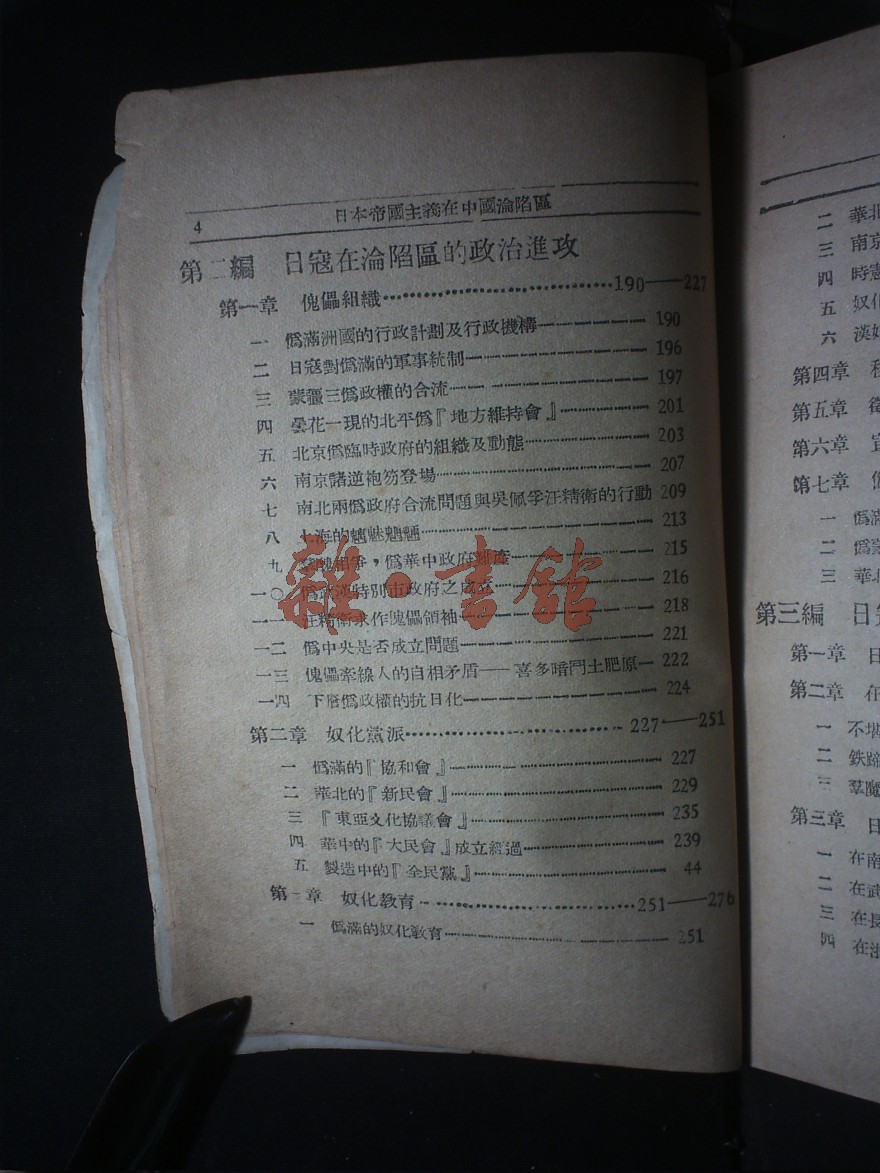 4
日本帝國主義在中國淪陷區
第二編 日寇在淪陷區的政治進攻
第一章 傀儡組織 190——227
一 僞滿洲國的行政計劃及行政機構 190
二 日寇對僞滿的軍事統制 196
三 蒙疆三僞政權的合流 197
四 曇花一現的北平僞『地方維持會』 201
五 北京僞臨時政府的組織及動態 203
六 南京諸逆袍笏登場 207
七 南北兩僞政府合流問題與吳佩孚汪精衛的行動 209
八 上海的魑魅魍魎 213
九 相爭，僞華中政府難產 215
一〇 僞武漢特別市政府之成立 216
一一 汪精衛求作傀儡領袖 218
一二 僞中央是否成立問題 221
一三 傀儡牽線人的自相矛盾——喜多暗鬥土肥原 222
一四 下層僞政權的抗日化 224
第二章 奴化黨派 227——251
一 僞滿的『協和會』 227
二 華北的『新民會』 229
三 『東亞文化協議會』 235
四 華中的『大民會』成立經過 239
五 製造中的『全民黨』 44
第 章 奴化教育 251——276
一 僞滿的奴化教育 251
二 華北
三 南京
四 時憲
五 奴化
六 漢奸
第四章
第五章
第六章
第七章
一 僞滿
二 僞蒙
三 華北
第三編 日寇
第一章 日
第二章 在
一 不堪
二 鉄蹄
三 羣魔
第三章 日
一 在南
二 在武
三 在
四 在
雜·書館